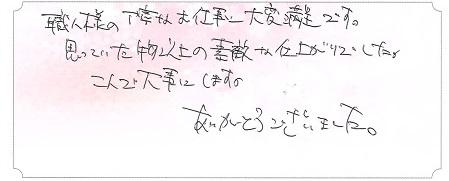 職人様の丁寧なお仕事に大変満足です。
思っていた物以上の素敵な仕上がりでした。
こんで大事にします。
ありがとうございました。